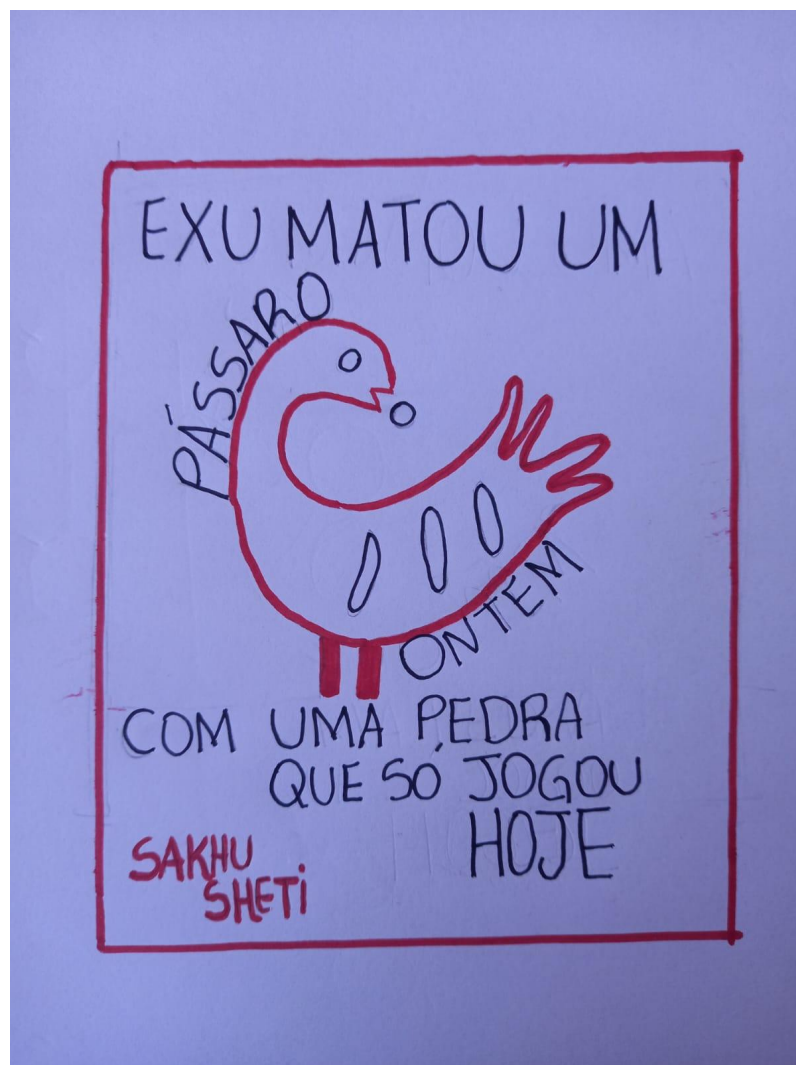 EXU MATOU UM
PÁSSARO
ONTEM
COM UMA PEDRA
QUE SÓ JOGOU
HOJE
SAKHU
SHETI